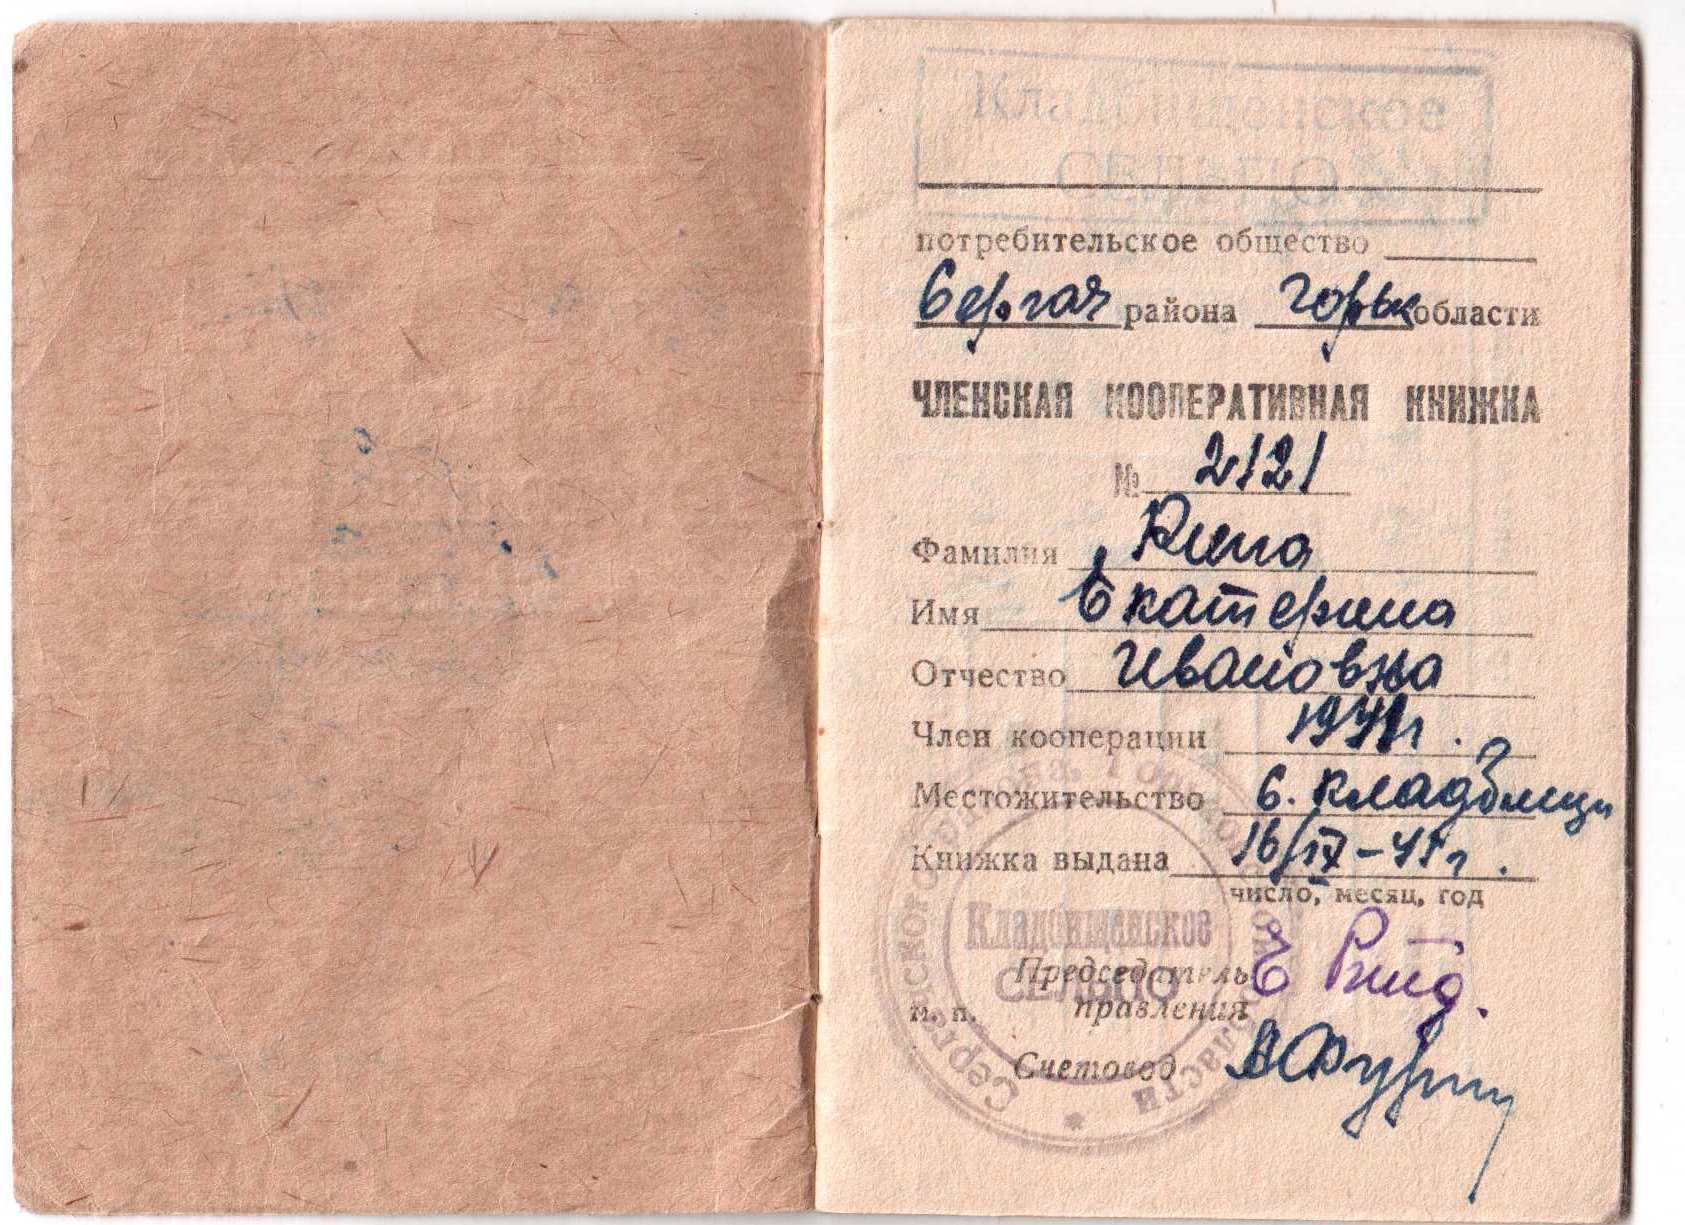 Кладбищенское
СЕЛЬПО
потребительское общество
Сергач района Горьк области
ЧЛЕНСКАЯ КООПЕРАТИВНАЯ КНИЖКА
№ 2121
Фамилия
Имя Екатерина
Отчество Ивановна
Член кооперации
Местожительство с. кладбищи
Книжка выдана
число, месяц, год
Председатель
м. п. правления
Счетовод
Сергачского района, Горьковской области
Кладбищенское
СЕЛЬПО